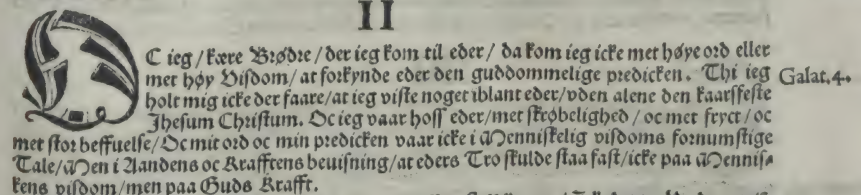 II
OC ieg / kære Brødre / der ieg kom til eder / da kom ieg icke met høye ord eller
met høy Visdom / at forkynde eder den guddommelige predicken. Thi ieg
holt mig icke der faare / at ieg viste noget iblant eder / vden alene den kaarsfeste
Jhesum Christum. Oc ieg vaar hoss eder / met skrøbelighed / oc met fryct / oc
met stor beffuelse / Oc mit ord oc min predicken vaar icke i Menniskelig visdoms fornumstige
Tale / Men i Aandens oc Krafftens beuisning / at eders Tro skulde staa fast / icke paa Mennis-
kens visdom / men paa Guds Krafft.
Galat. 4.